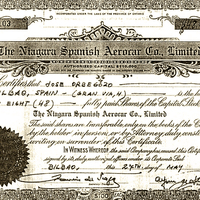 INCORPORATED UNDER THE LAWS OF THE PROVINCE OF ONTARIO
The Niagara Spanish Aerocar Co., Limited
Certifies that JOSE ORBEGOZO
BILBAO, SPAIN - (GRAN VIA, 4) is the
EIGHT (48) fully paid Shares of the Capital Stock
The Niagara Spanish Aerocar Co., Limited
The said shares are transferable only on the books of the Co
by the holder in person or by Attorney duly
in surrender of this Certificate.
In Witness Whereof the said Company has caused this Certificate
signed by its duly authorized officers under its Corporate Seal
BILBAO, 24TH day of MAY,